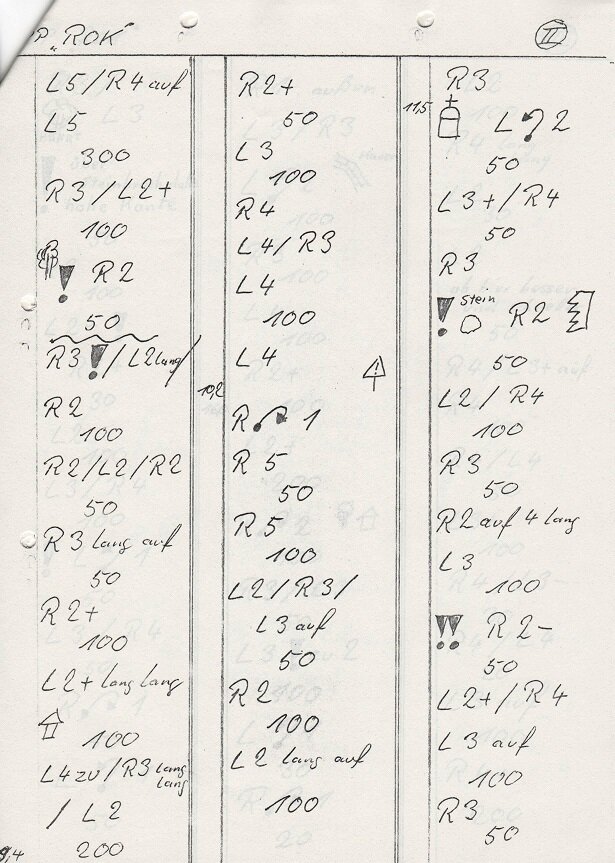 P „ROK"
II
L5/R4 auf
L5
300
R3/L2+
100
! R2
50
R3!/L2lang/
R2
100
R2/L2/R2
50
R3 lang auf
50
R2+
100
L2+ lang lang
100
L4zu/R3 lang
lang
/L2
200
9,4
R2+
50
L3
100
R4
L4/R3
L4
100
L4
10,2
R 1
R5
50
R5
100
L2/R3/
L3 auf
50
R2
100
L2 lang auf
100
R3
11,5
L 2
50
L3+/R4
50
R3
! Stein R2
50
L2/R4
100
R3
50
R2 auf 4 lang
L3
100
!! R2-
50
L2+/R4
L3 auf
100
R3
50